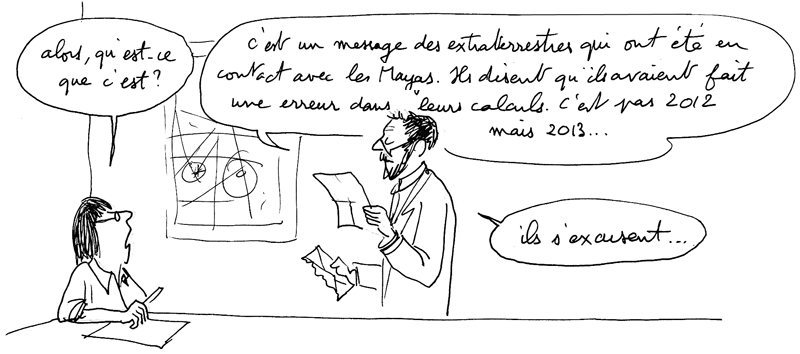 alors, qu'est-ce
que c'est?
c'est un message des extraterrestres qui ont été en
contact avec les Mayas. Ils disent qu'ils avaient fait
une erreur dans leurs calculs. c'est pas 2012
mais 2013...
ils s'excusent...